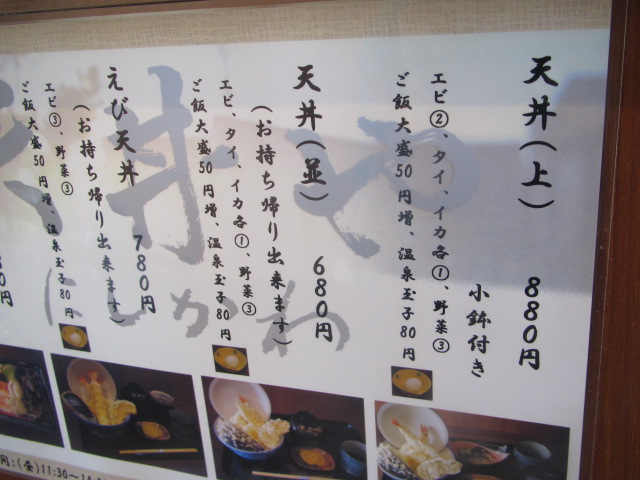 天丼（上） 880円
小鉢付き
エビ②、タイ、イカ各①、野菜③
ご飯大盛50円増、温泉玉子80円
天丼（並） 680円
（お持ち帰り出来ます）
エビ、タイ、イカ各①、野菜③
ご飯大盛50円増、温泉玉子80円
えび天丼 780円
（お持ち帰り出来ます）
エビ③、野菜③
ご飯大盛50円増、温泉玉子80円
にしかわ